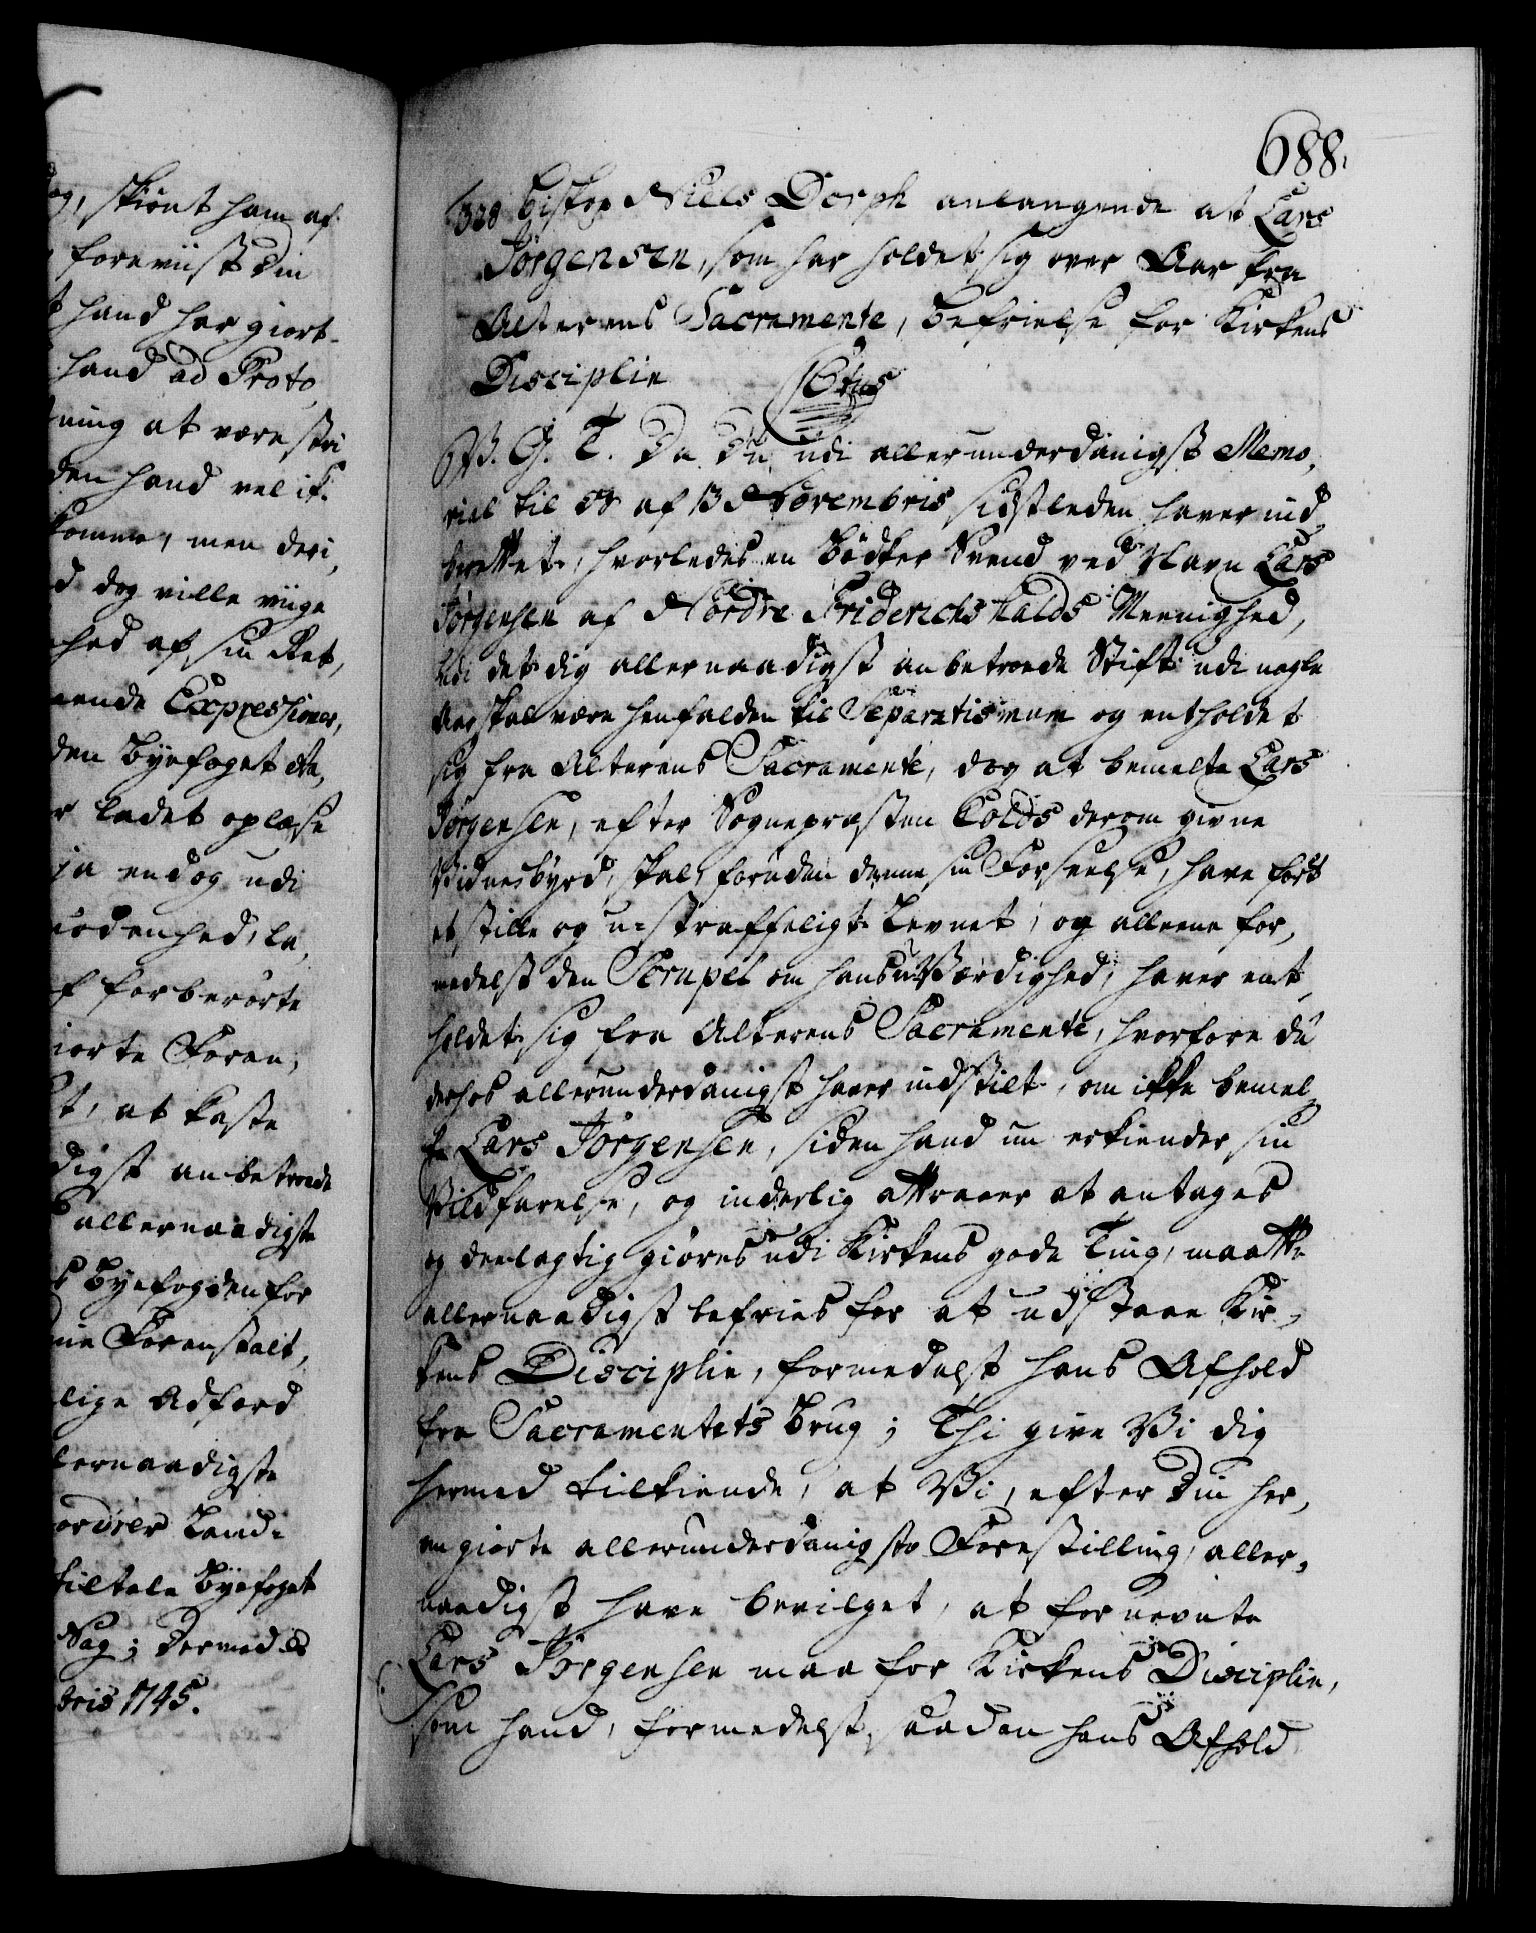 og, skiønt ham af
foreviist Din
hand har giort
hand ad Proto
ning at være stri
den hand vel ik
komme, men deri,
d dog ville viige
hed af sin Ret,
ende Expressioner,
den Byefoget etc,
r ladet oplæse
ja endog udi
uodenhed, la,
f forberørte
iorte Foran,
t, at kaste
digst anbetroede
allernaadigste
s Byefogden for
ne Foranstalt,
lige Adfærd
lernaadigste
ordrer Land-
tiltale Byefoget
Sag; Dermed etc
bris 1745.
688.
328 Biskop Niels Dorph anlangende at Lars
Jørgensen, som har holdet sig over Aar fra
Alterens Sacramente, befrielse for Kirkens
Disciplin
V. G. T. Da Du udi allerunderdanigst Memo,
rial til Os af 13 Novembris sidstleden haver ind,
berettet, hvorledes en Bødker Svend ved Navn Lars
Jørgensen af Nordre Friderichshalds Meenighed,
udi det dig allernaadigst anbetroede Stift udi nogle
Aar skal være henfalden til Separatismum og entholdet
sig fra Alterens Sacramente, dog at bemelte Lars
Jørgensen, efter Sognepræsten Colds derom givne
Vidnesbyrd, skal, foruden denne sin Forseelse, have ført
et stille og u-straffeligt Levnet, og alleene for,
medelst den Scrupel om hans uværdighed, haver ent,
holdet sig fra Alterens Sacramente, hvorfore du
derhos allerunderdanigst haver indstilt, om ikke bemel,
te Lars Jørgensen, siden hand nu erkiender sin
Vildfarelse, og inderlig attraaer at antages
og deelagtig giøres udi Kirkens gode Ting, maatte
allernaadigst befries for at udstaae Kir,
kens Disciplin, formedelst hans Afhold
fra Sacramentets Brug; Thi give Vi dig
hermed tilkiende, at Vi, efter Din her,
om giorte allerunderdanigste Forestilling, aller,
naadigst have bevilget, at fornevnte
Lars Jørgensen maa for Kirkens Disciplin,
som hand, formedelst saadan hans Afhold